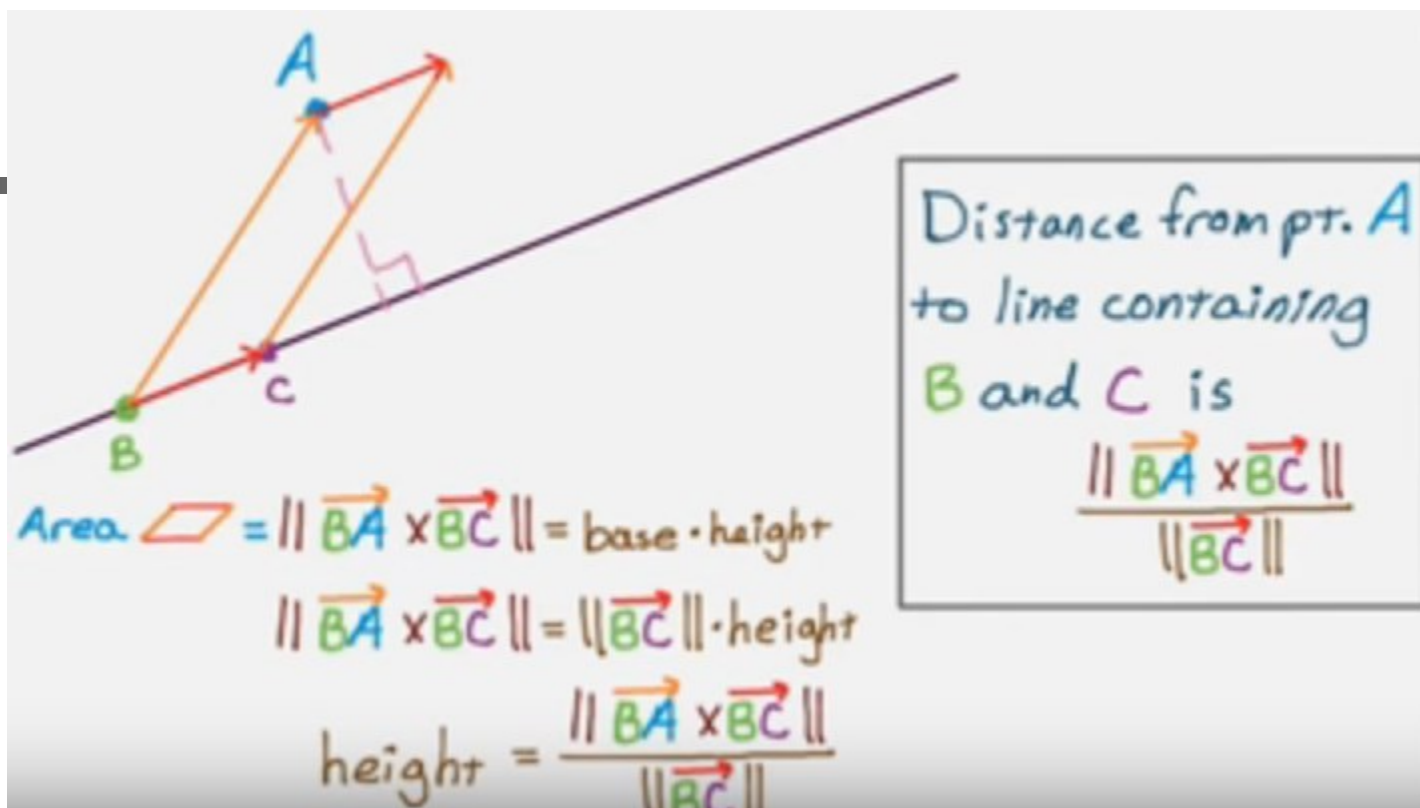 A
C
B
Area ▱ = || BA × BC || = base · height
|| BA × BC || = || BC || · height
height = || BA × BC ||
|| BC ||
Distance from pt. A
to line containing
B and C is
|| BA × BC ||
|| BC ||